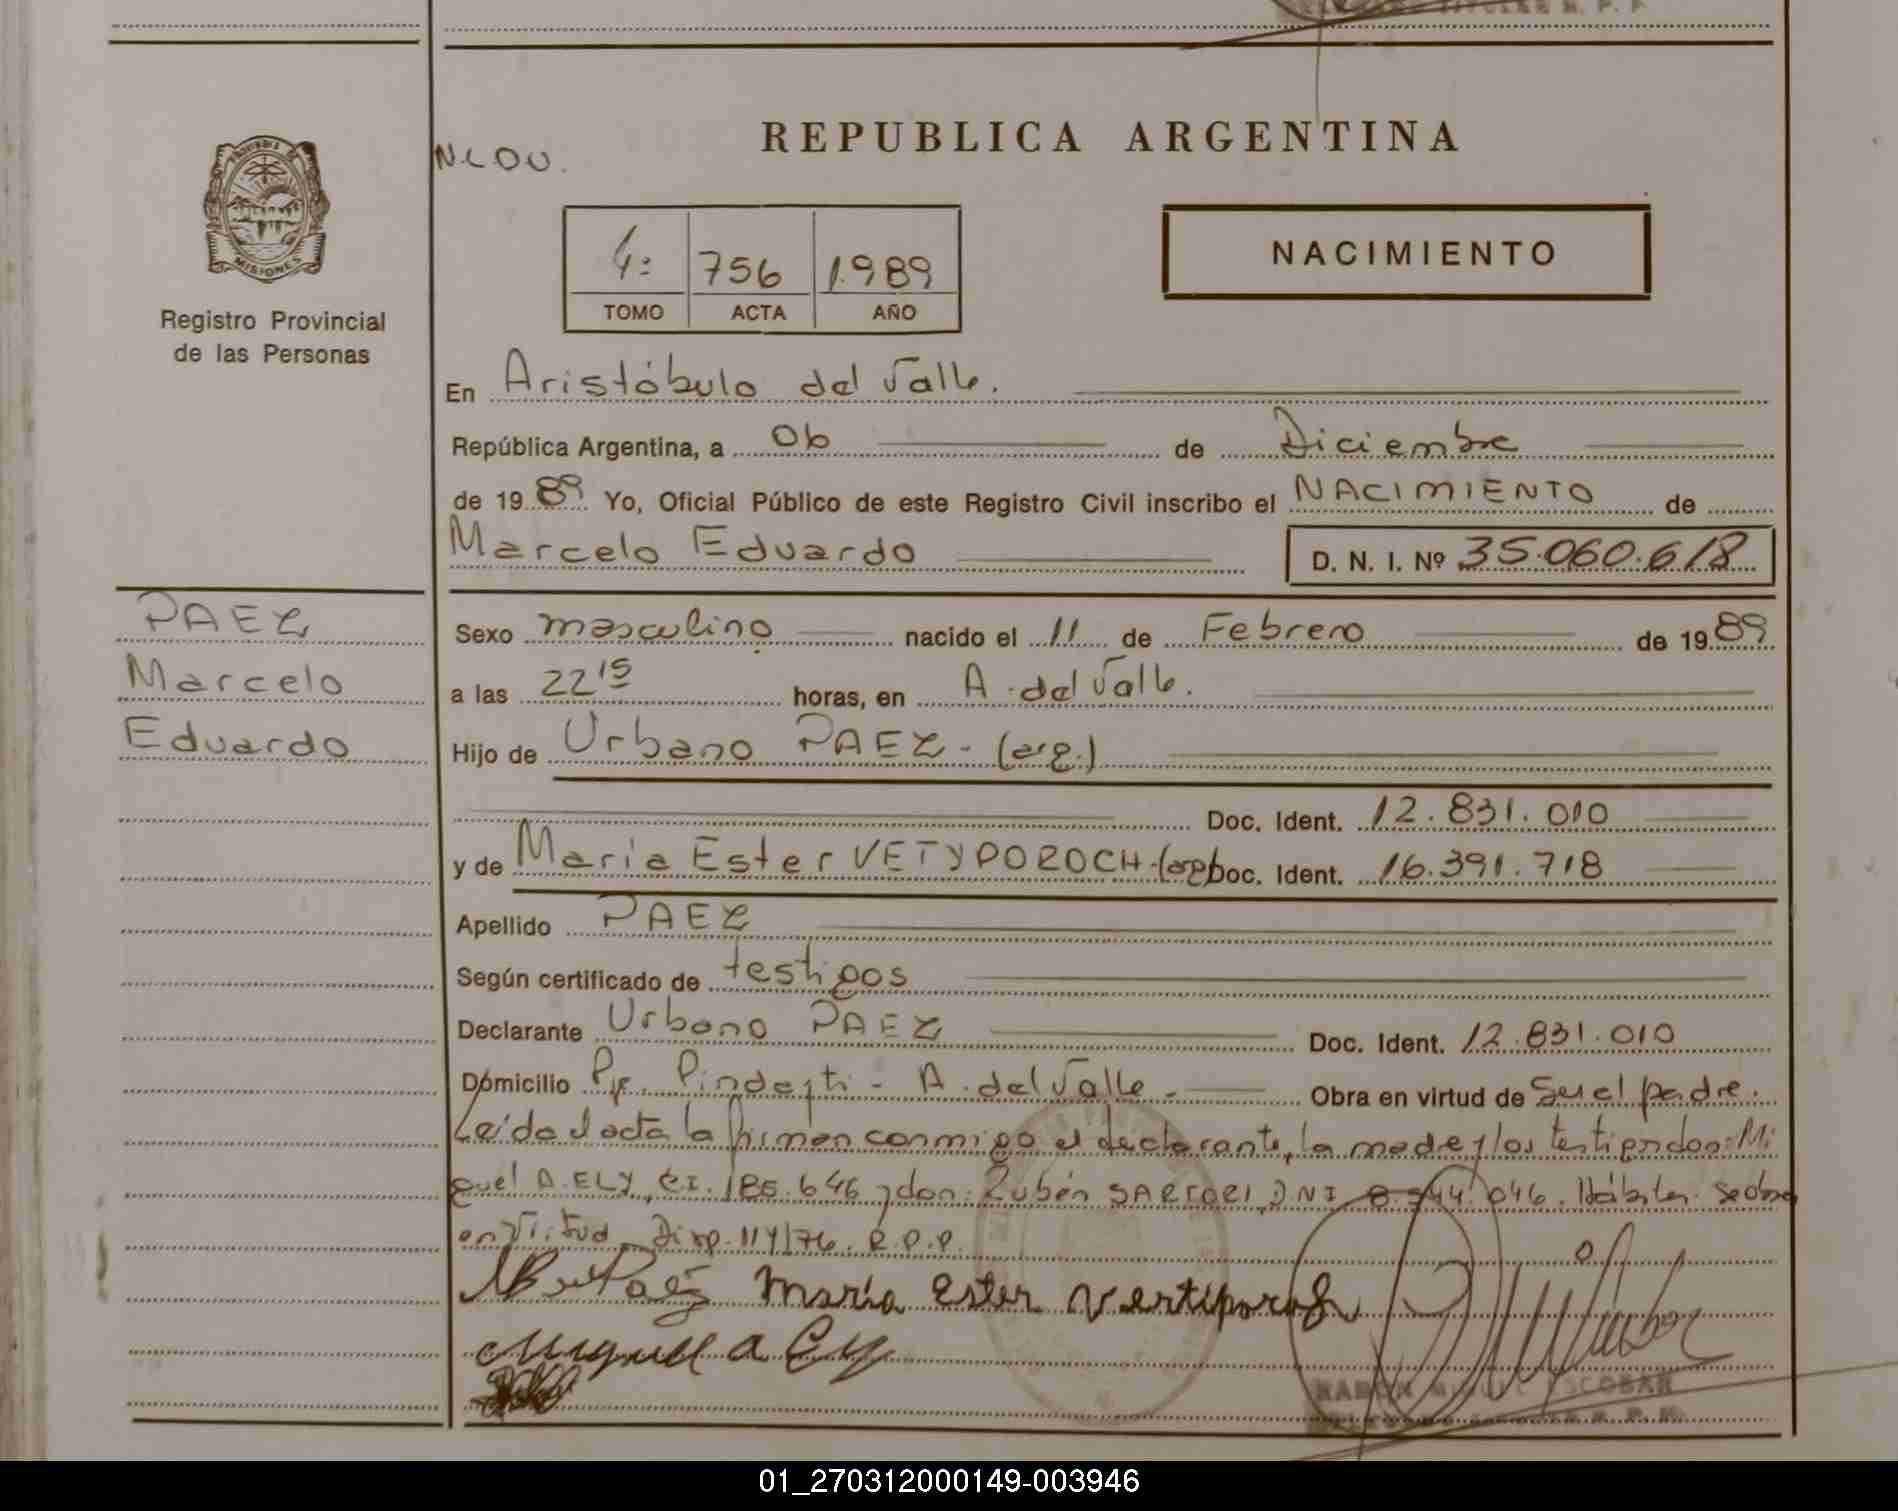 REPUBLICA ARGENTINA
NACIMIENTO
4:
756
1.989
TOMO
ACTA
AÑO
MISIONES
Registro Provincial
de las Personas
En Aristóbulo del Valle.
República Argentina, a 06 de Diciembre
de 1989 Yo, Oficial Público de este Registro Civil inscribo el NACIMIENTO de
Marcelo Eduardo D. N. I. Nº 35.060.618
PAEZ
Marcelo
Eduardo
Sexo masculino nacido el 11 de Febrero de 1989
a las 22 15 horas, en A. del Valle.
Hijo de Urbano PAEZ - (arg.)
Doc. Ident. 12.831.010
y de María Ester VETYPOROCH-(arg) Doc. Ident. 16.391.718
Apellido PAEZ
Según certificado de testigos
Declarante Urbano PAEZ Doc. Ident. 12.831.010
Domicilio Pje. Pindayti - A. del Valle - Obra en virtud de Ser el padre.
Leída el acta la firman conmigo el declarante, la madre y los testigos don: Mi
guel A. ELY, CI. 185.646 y don: Rubén SARTORI, D.N.I 8.544.046. Hábiles. Se obra
en Virtud Disp. 114/76. R.P.P.
María Ester Vertiporoch
Miguel A Ely
RAMON MIGUEL ESCOBAR
01_270312000149-003946